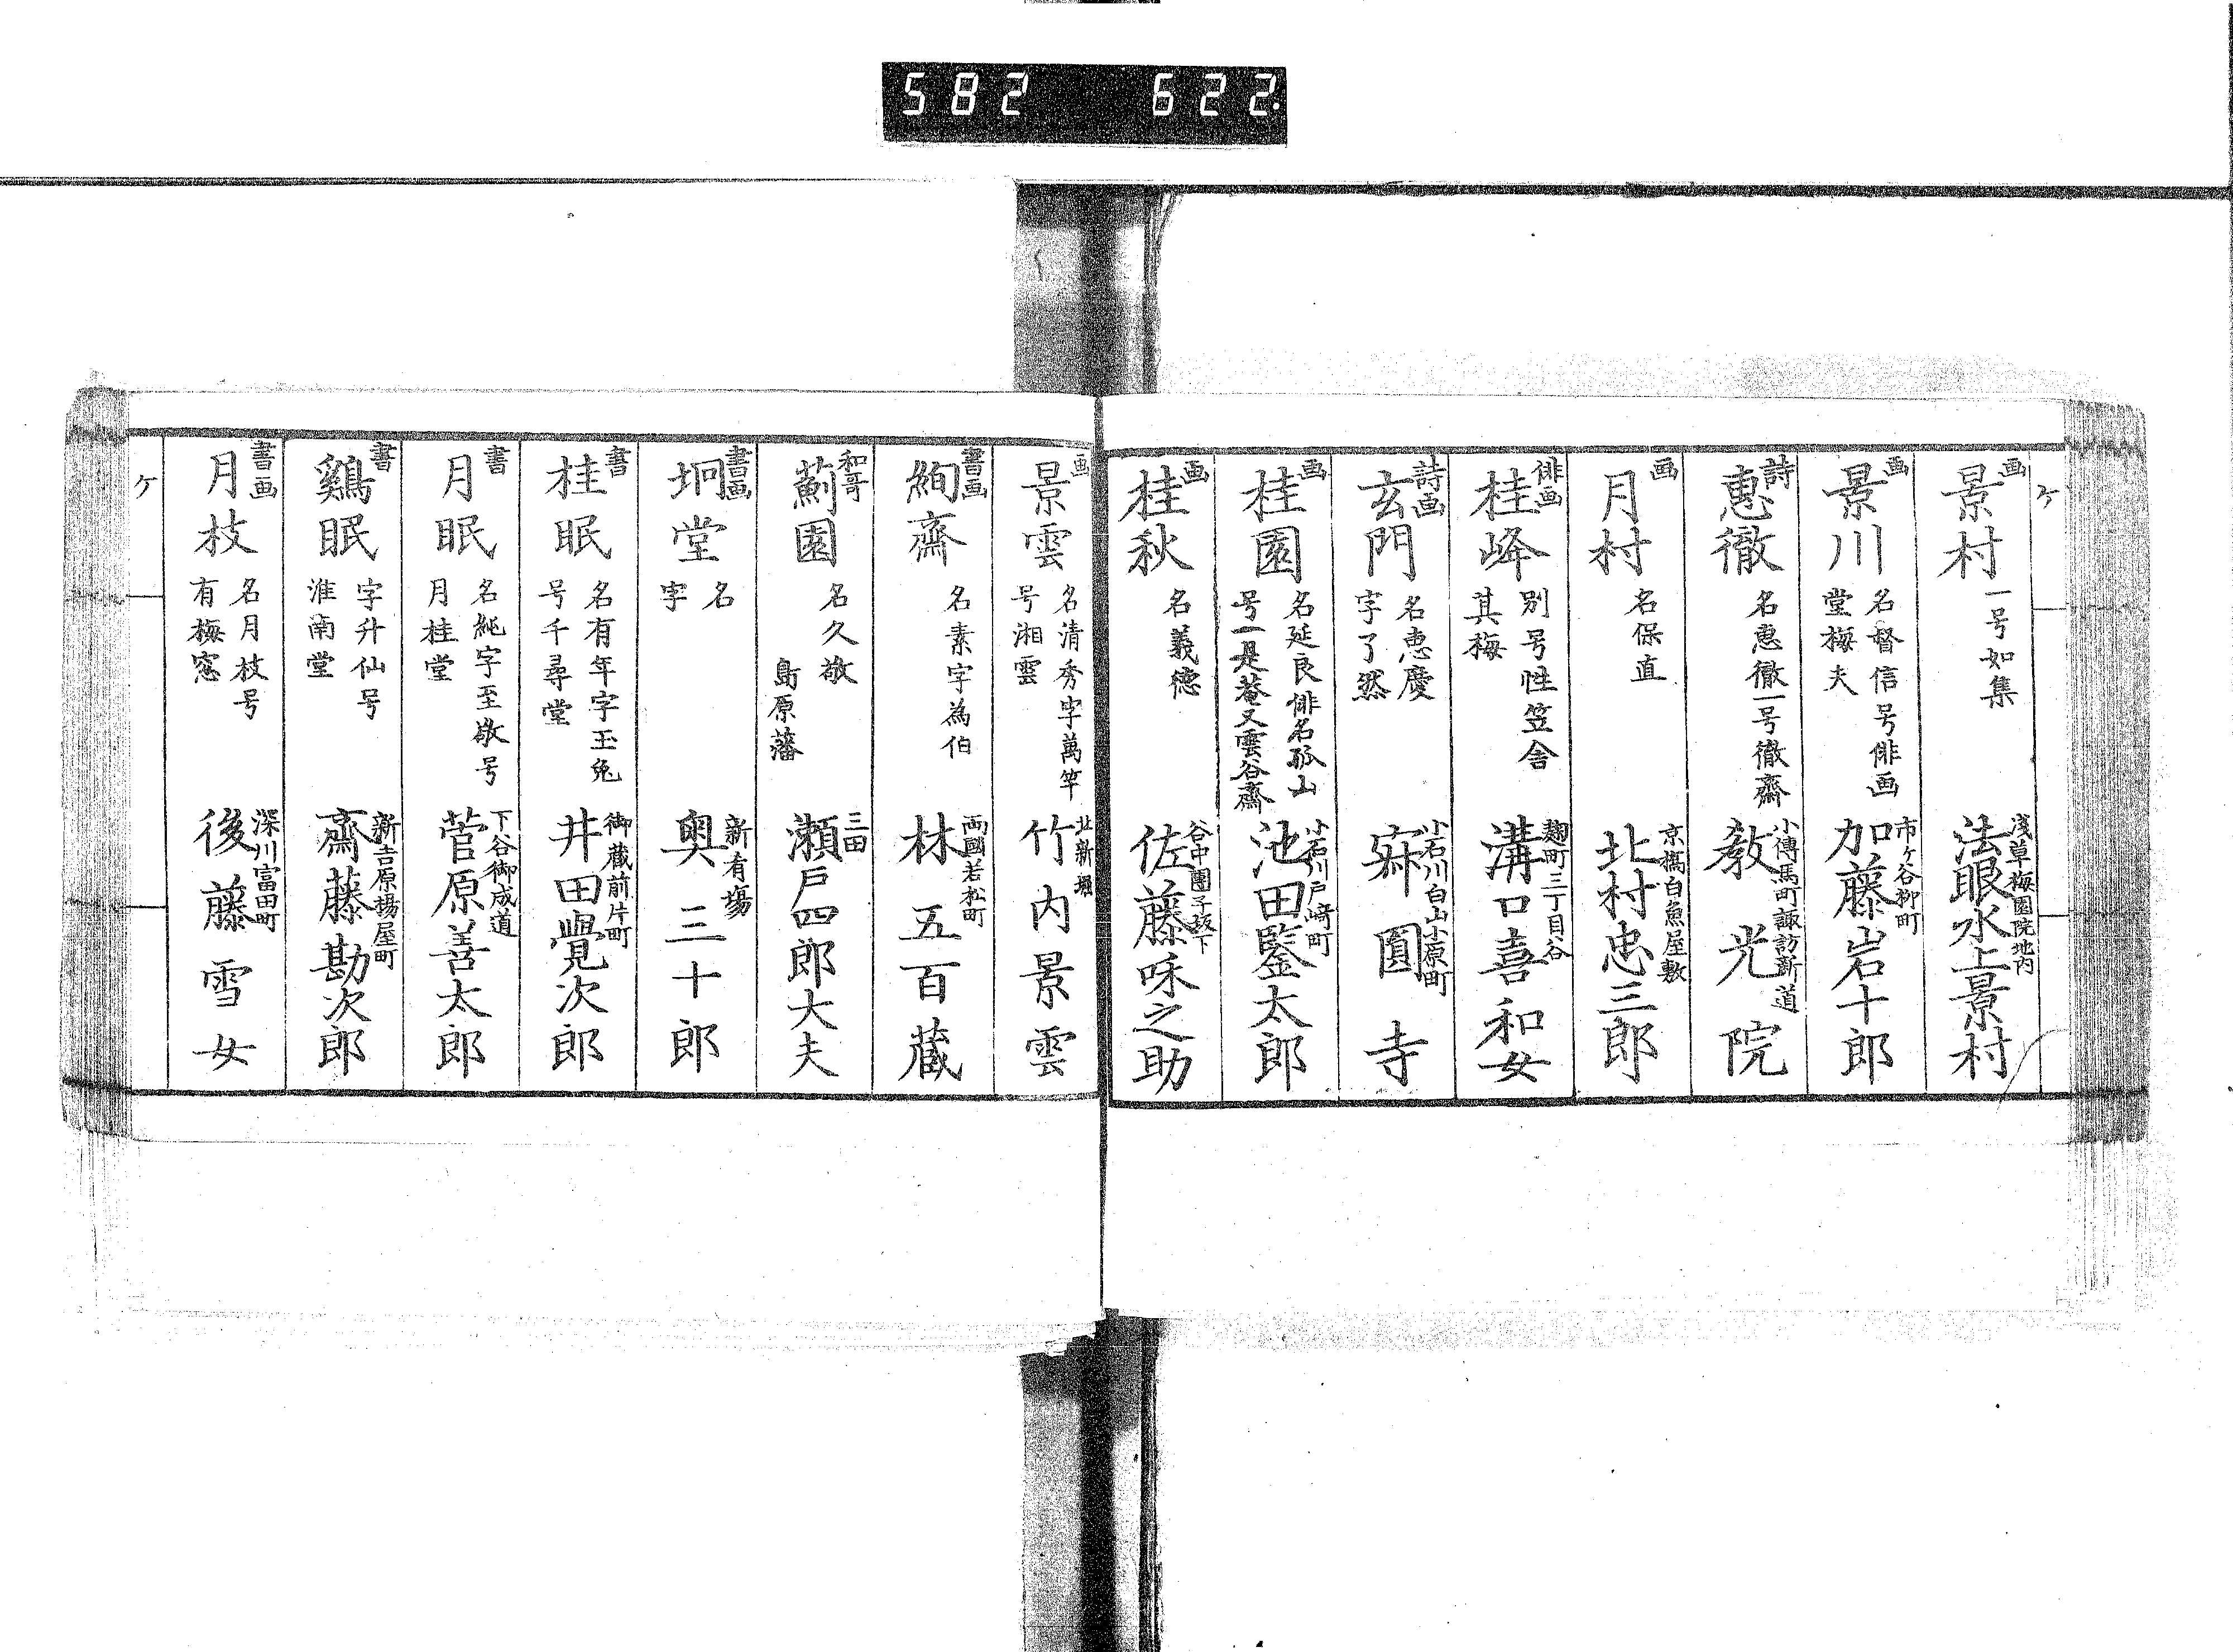 582 622.
ケ
画
景村
一号如集
浅草梅園院地内
法眼水上景村
画
景川
名督信号俳画
堂梅夫
市ヶ谷柳町
加藤岩十郎
詩
惠徹
名惠徹一号徹齋
小傳馬町諏訪新道
教光院
画
月村
名保直
京橋白魚屋敷
北村忠三郎
俳画
桂峰
別号性笠舎
其梅
麹町三丁目谷
溝口喜和女
詩画
玄門
名惠慶
字了然
小石川白山小原町
寂圓寺
画
桂園
名延良俳名孤山
号一是菴又雲谷齋
小石川戸崎町
池田鑒太郎
画
桂秋
名義德
谷中團子坂下
佐藤咊之助
画
景雲
名清秀字萬竿
号湘雲
北新堀
竹内景雲
書画
絢齋
名素字為伯
両國若松町
林五百蔵
和哥
薊園
名久敬
島原藩
三田
瀬戸四郎大夫
書画
坰堂
名
字
新有場
奥三十郎
書
桂眠
名有年字玉兔
号千尋堂
御蔵前片町
井田覺次郎
書
月眠
名純字至敬号
月桂堂
下谷御成道
菅原善太郎
書
鷄眠
字升仙号
淮南堂
新吉原揚屋町
齋藤勘次郎
書画
月枝
名月枝号
有梅窓
深川富田町
後藤雪女
ケ